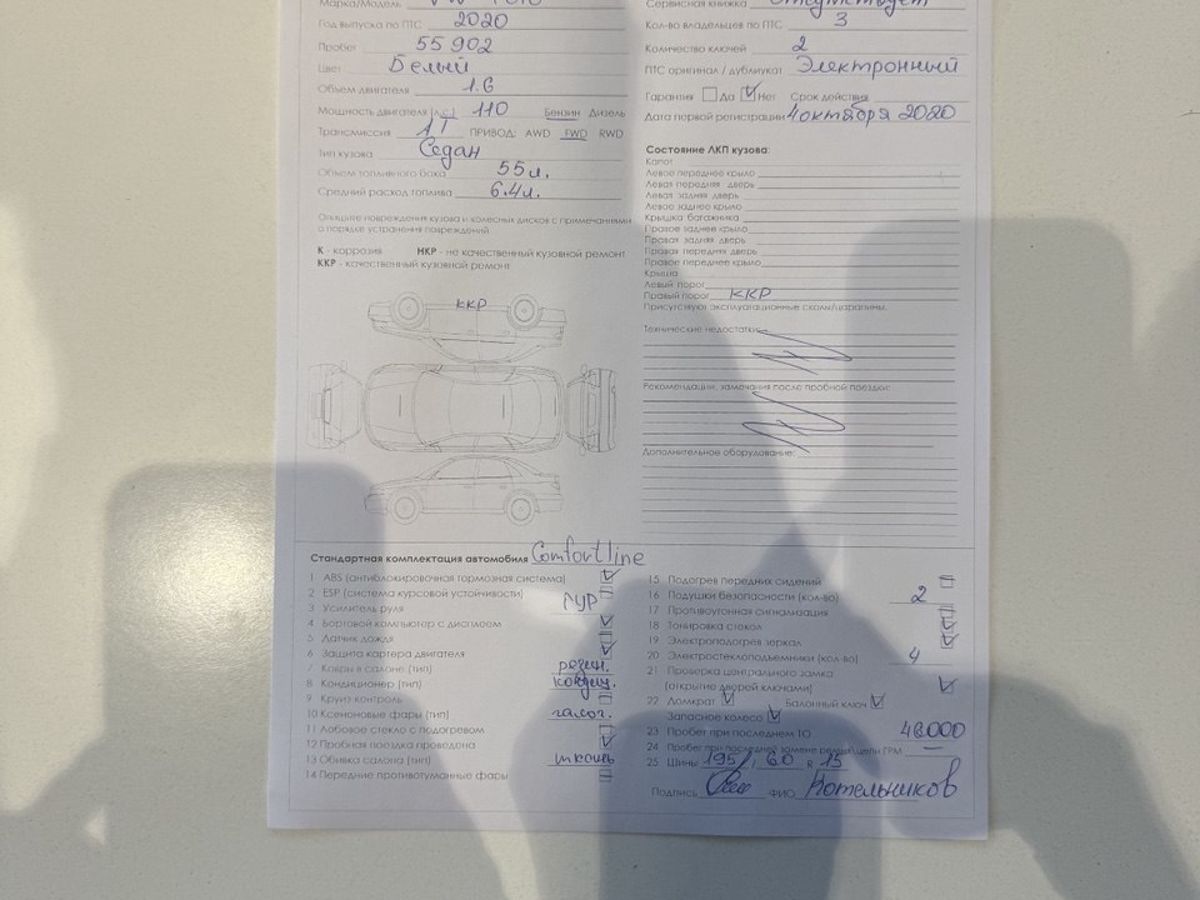 Марка/Модель VW Polo
Год выпуска по ПТС 2020
Пробег 55 902
Цвет Белый
Объем двигателя 1.6
Мощность двигателя (л.с) 110 Бензин Дизель
Трансмиссия АТ ПРИВОД: AWD FWD RWD
Тип кузова Седан
Объем топливного бака 55 л.
Средний расход топлива 6.4 л.
Опишите повреждения кузова и колесных дисков с примечаниями
о порядке устранения повреждений
К - коррозия НКР - не качественный кузовной ремонт
ККР - качественный кузовной ремонт
ККР
Сервисная книжка Отсутствует
Кол-во владельцев по ПТС 3
Количество ключей 2
ПТС оригинал / дубликат Электронный
Гарантия Да Нет Срок действия
Дата первой регистрации 4 октября 2020
Состояние ЛКП кузова:
Капот
Левое переднее крыло
Левая передняя дверь
Левая задняя дверь
Левое заднее крыло
Крышка багажника
Правое заднее крыло
Правая задняя дверь
Правая передняя дверь
Правое переднее крыло
Крыша
Левый порог
Правый порог ККР
Присутствуют эксплуатационные сколы/царапины.
Технические недостатки:
Рекомендации, замечания после пробной поездки:
Дополнительное оборудование:
Стандартная комплектация автомобиля Comfortline
1 ABS (антиблокировочная тормозная система)
2 ESP (система курсовой устойчивости)
3 Усилитель руля ГУР
4 Бортовой компьютер с дисплеем
5 Датчик дождя
6 Защита картера двигателя
7 Ковры в салоне (тип) резин.
8 Кондиционер (тип) кондиц.
9 Круиз контроль
10 Ксеноновые фары (тип) галог.
11 Лобовое стекло с подогревом
12 Пробная поездка проведена
13 Обивка салона (тип) ткань
14 Передние противотуманные фары
15 Подогрев передних сидений
16 Подушки безопасности (кол-во) 2
17 Противоугонная сигнализация
18 Тонировка стекол
19 Электроподогрев зеркал
20 Электростеклоподъемники (кол-во) 4
21 Проверка центрального замка
(открытие дверей ключами)
22 Домкрат Балонный ключ
Запасное колесо
23 Пробег при последнем ТО
24 Пробег при последней замене ремня/цепи ГРМ —
25 Шины 195 / 60 R 15
Подпись ФИО Котельников